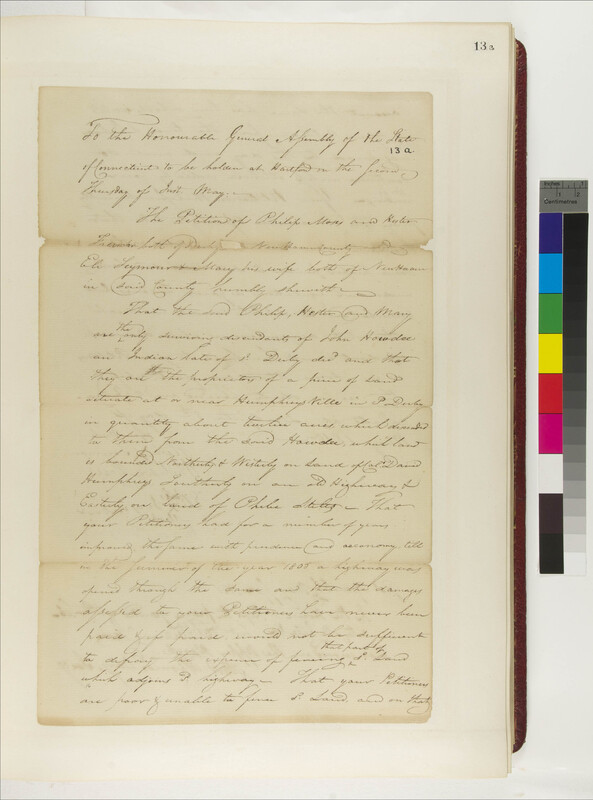 13a
To the Honourable General Assembly of the State
13a
of Connecticut to be holden at Hartford on the second
Thursday of Inst May.
The Petition of Philip Moses and Hester
both of Derby New Haven County &
Eli Seymour & Mary his wife both of New Haven
in said County humbly sheweth
That the said Philip, Hester and Mary
are the only surviving descendants of John Howdee
an Indian late of sd. Derby decd and that
they are the proprietors of a piece of Land
situate at or near Humphreys Ville in sd Derby
in quantity about twelve acres which descended
to them from the said Howdee, which land
is bounded Northerly & Westerly on Land of Col. David
Humphreys Southerly on an old Highway &
Easterly on Land of Phebe Stiles - That
your Petitioners had for a number of years
improved the same with prudence and economy till
in the summer of the year 1805 a highway was
opened through the same and that the damages
assessed to your Petitioners have never been
paid & if paid would not be sufficient
to defray the expence of fencing that part of sd. Land
which adjoins sd. highway - That your Petitioners
are poor & unable to fence sd. Land and on that
Inches
Centimetres